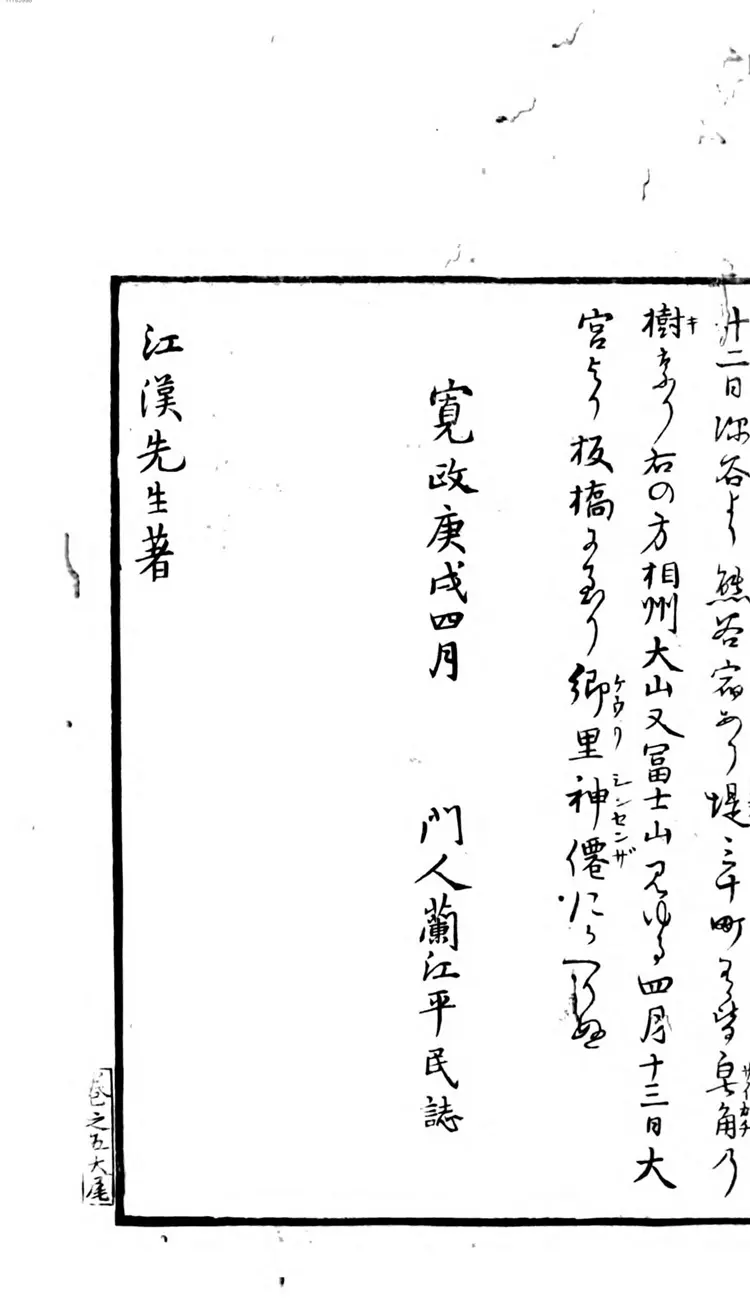 十二日深谷より熊谷宿あり堤三十町も皆皂角乃
サイカチ
樹なり右の方相州大山又冨士山見ゆる四月十三日大
キ
宮より板橋に至り郷里神僊坐にかへりぬ
ケウリ シンセンザ
寛政庚戌四月 門人蘭江平民誌
江漢先生著
巻之五大尾